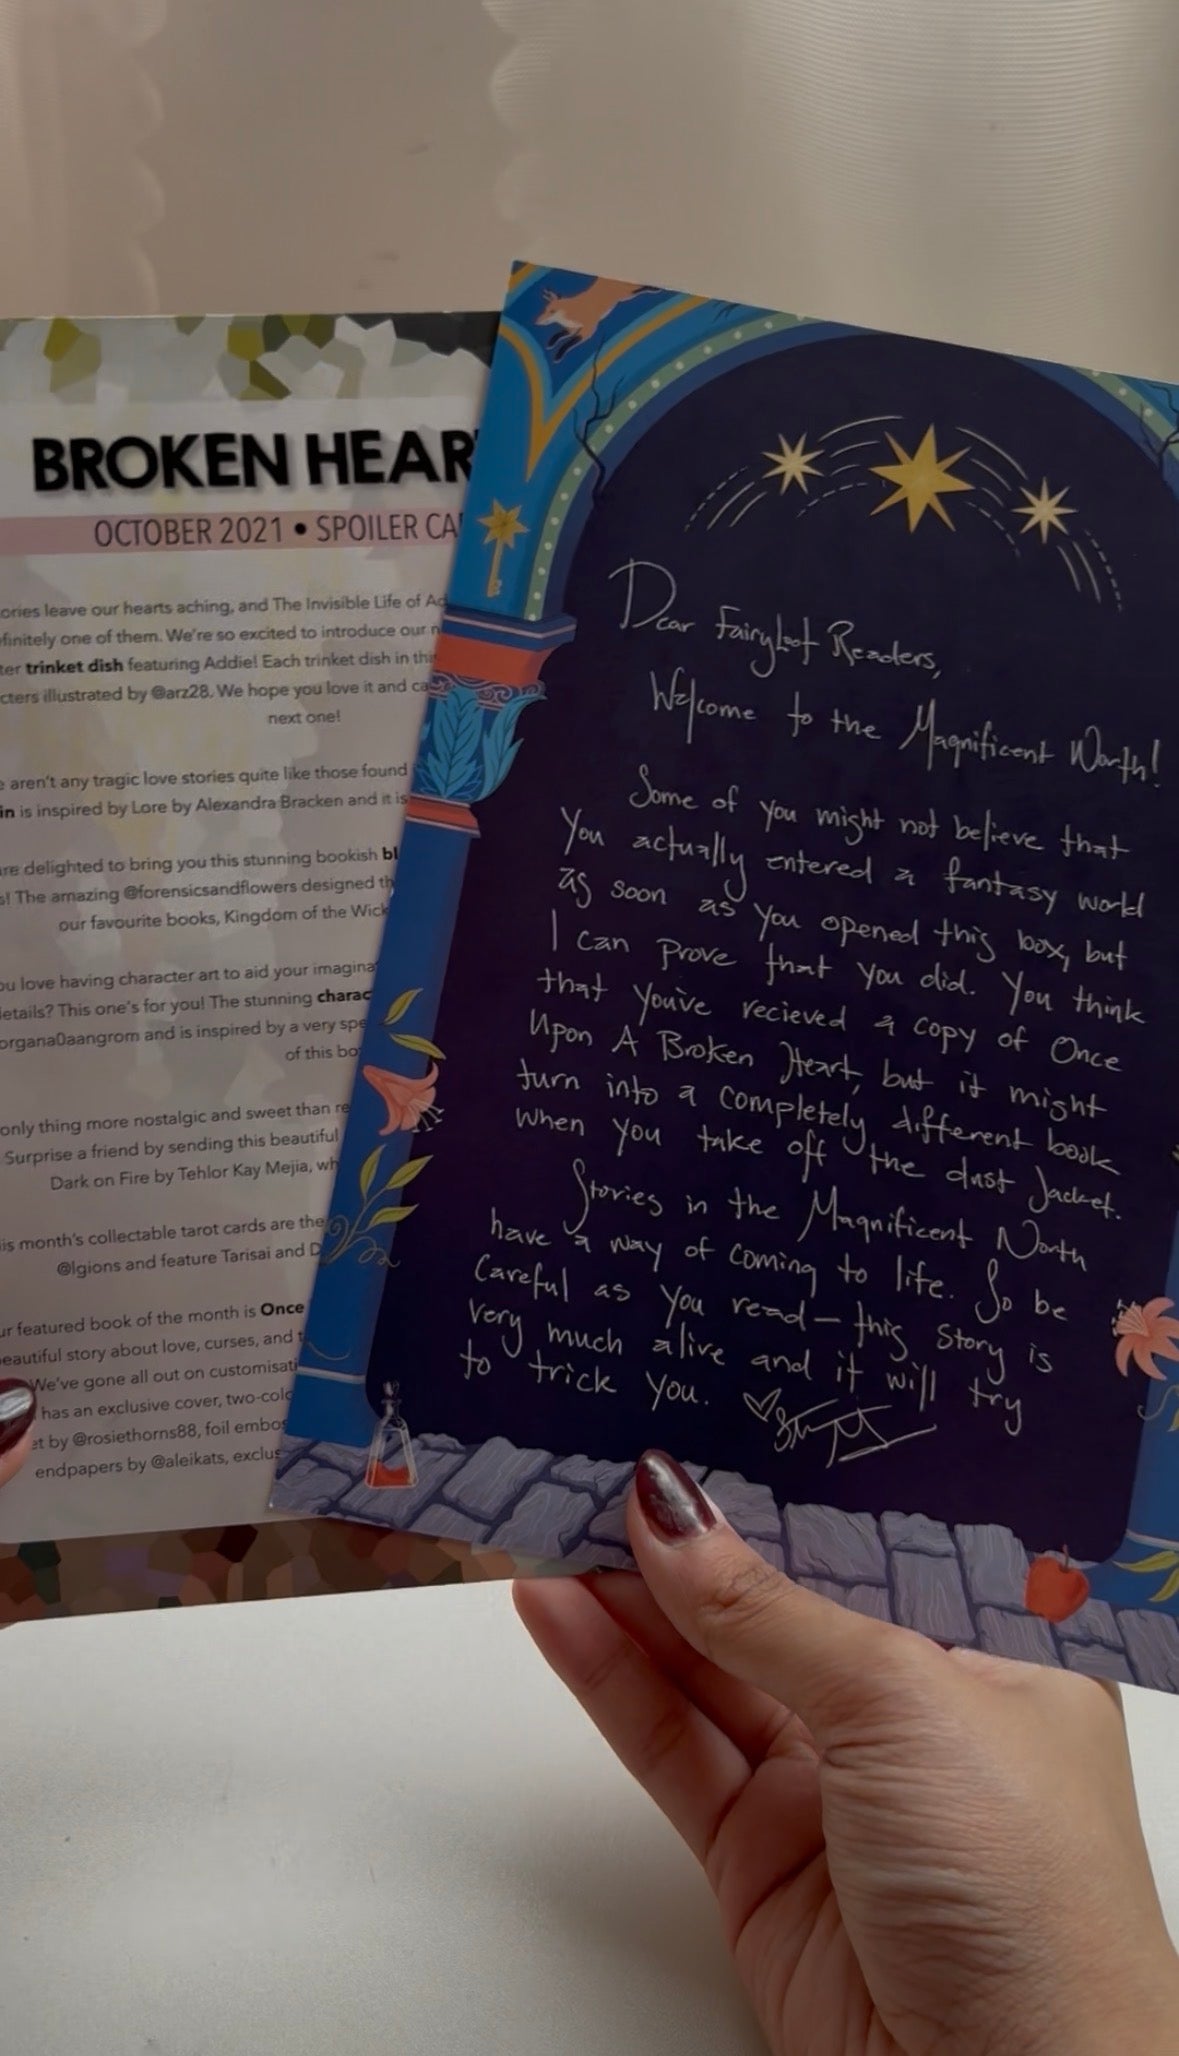 BROKEN HEAR
OCTOBER 2021 • SPOILER CA
ories leave our hearts aching, and The Invisible Life of Ad
finitely one of them. We're so excited to introduce our n
ter trinket dish featuring Addie! Each trinket dish in thi
cters illustrated by @arz28. We hope you love it and ca
next one!
e aren't any tragic love stories quite like those found
in is inspired by Lore by Alexandra Bracken and it is
are delighted to bring you this stunning bookish bl
s! The amazing @forensicsandflowers designed th
our favourite books, Kingdom of the Wick
ou love having character art to aid your imagina
details? This one's for you! The stunning charac
organa0aangrom and is inspired by a very spe
of this bo
only thing more nostalgic and sweet than re
Surprise a friend by sending this beautiful
Dark on Fire by Tehlor Kay Mejia, wh
is month's collectable tarot cards are the
@lgions and feature Tarisai and D
ur featured book of the month is Once
eautiful story about love, curses, and t
We've gone all out on customisati
has an exclusive cover, two-colo
et by @rosiethorns88, foil embos
endpapers by @aleikats, exclus
Dear FairyLoot Readers,
Welcome to the Magnificent North!
Some of you might not believe that
you actually entered a fantasy world
as soon as you opened this box, but
I can prove that you did. You think
that you've recieved a copy of Once
Upon A Broken Heart, but it might
turn into a completely different book
when you take off the dust jacket.
Stories in the Magnificent North
have a way of coming to life. So be
careful as you read – this story is
very much alive and it will try
to trick you.